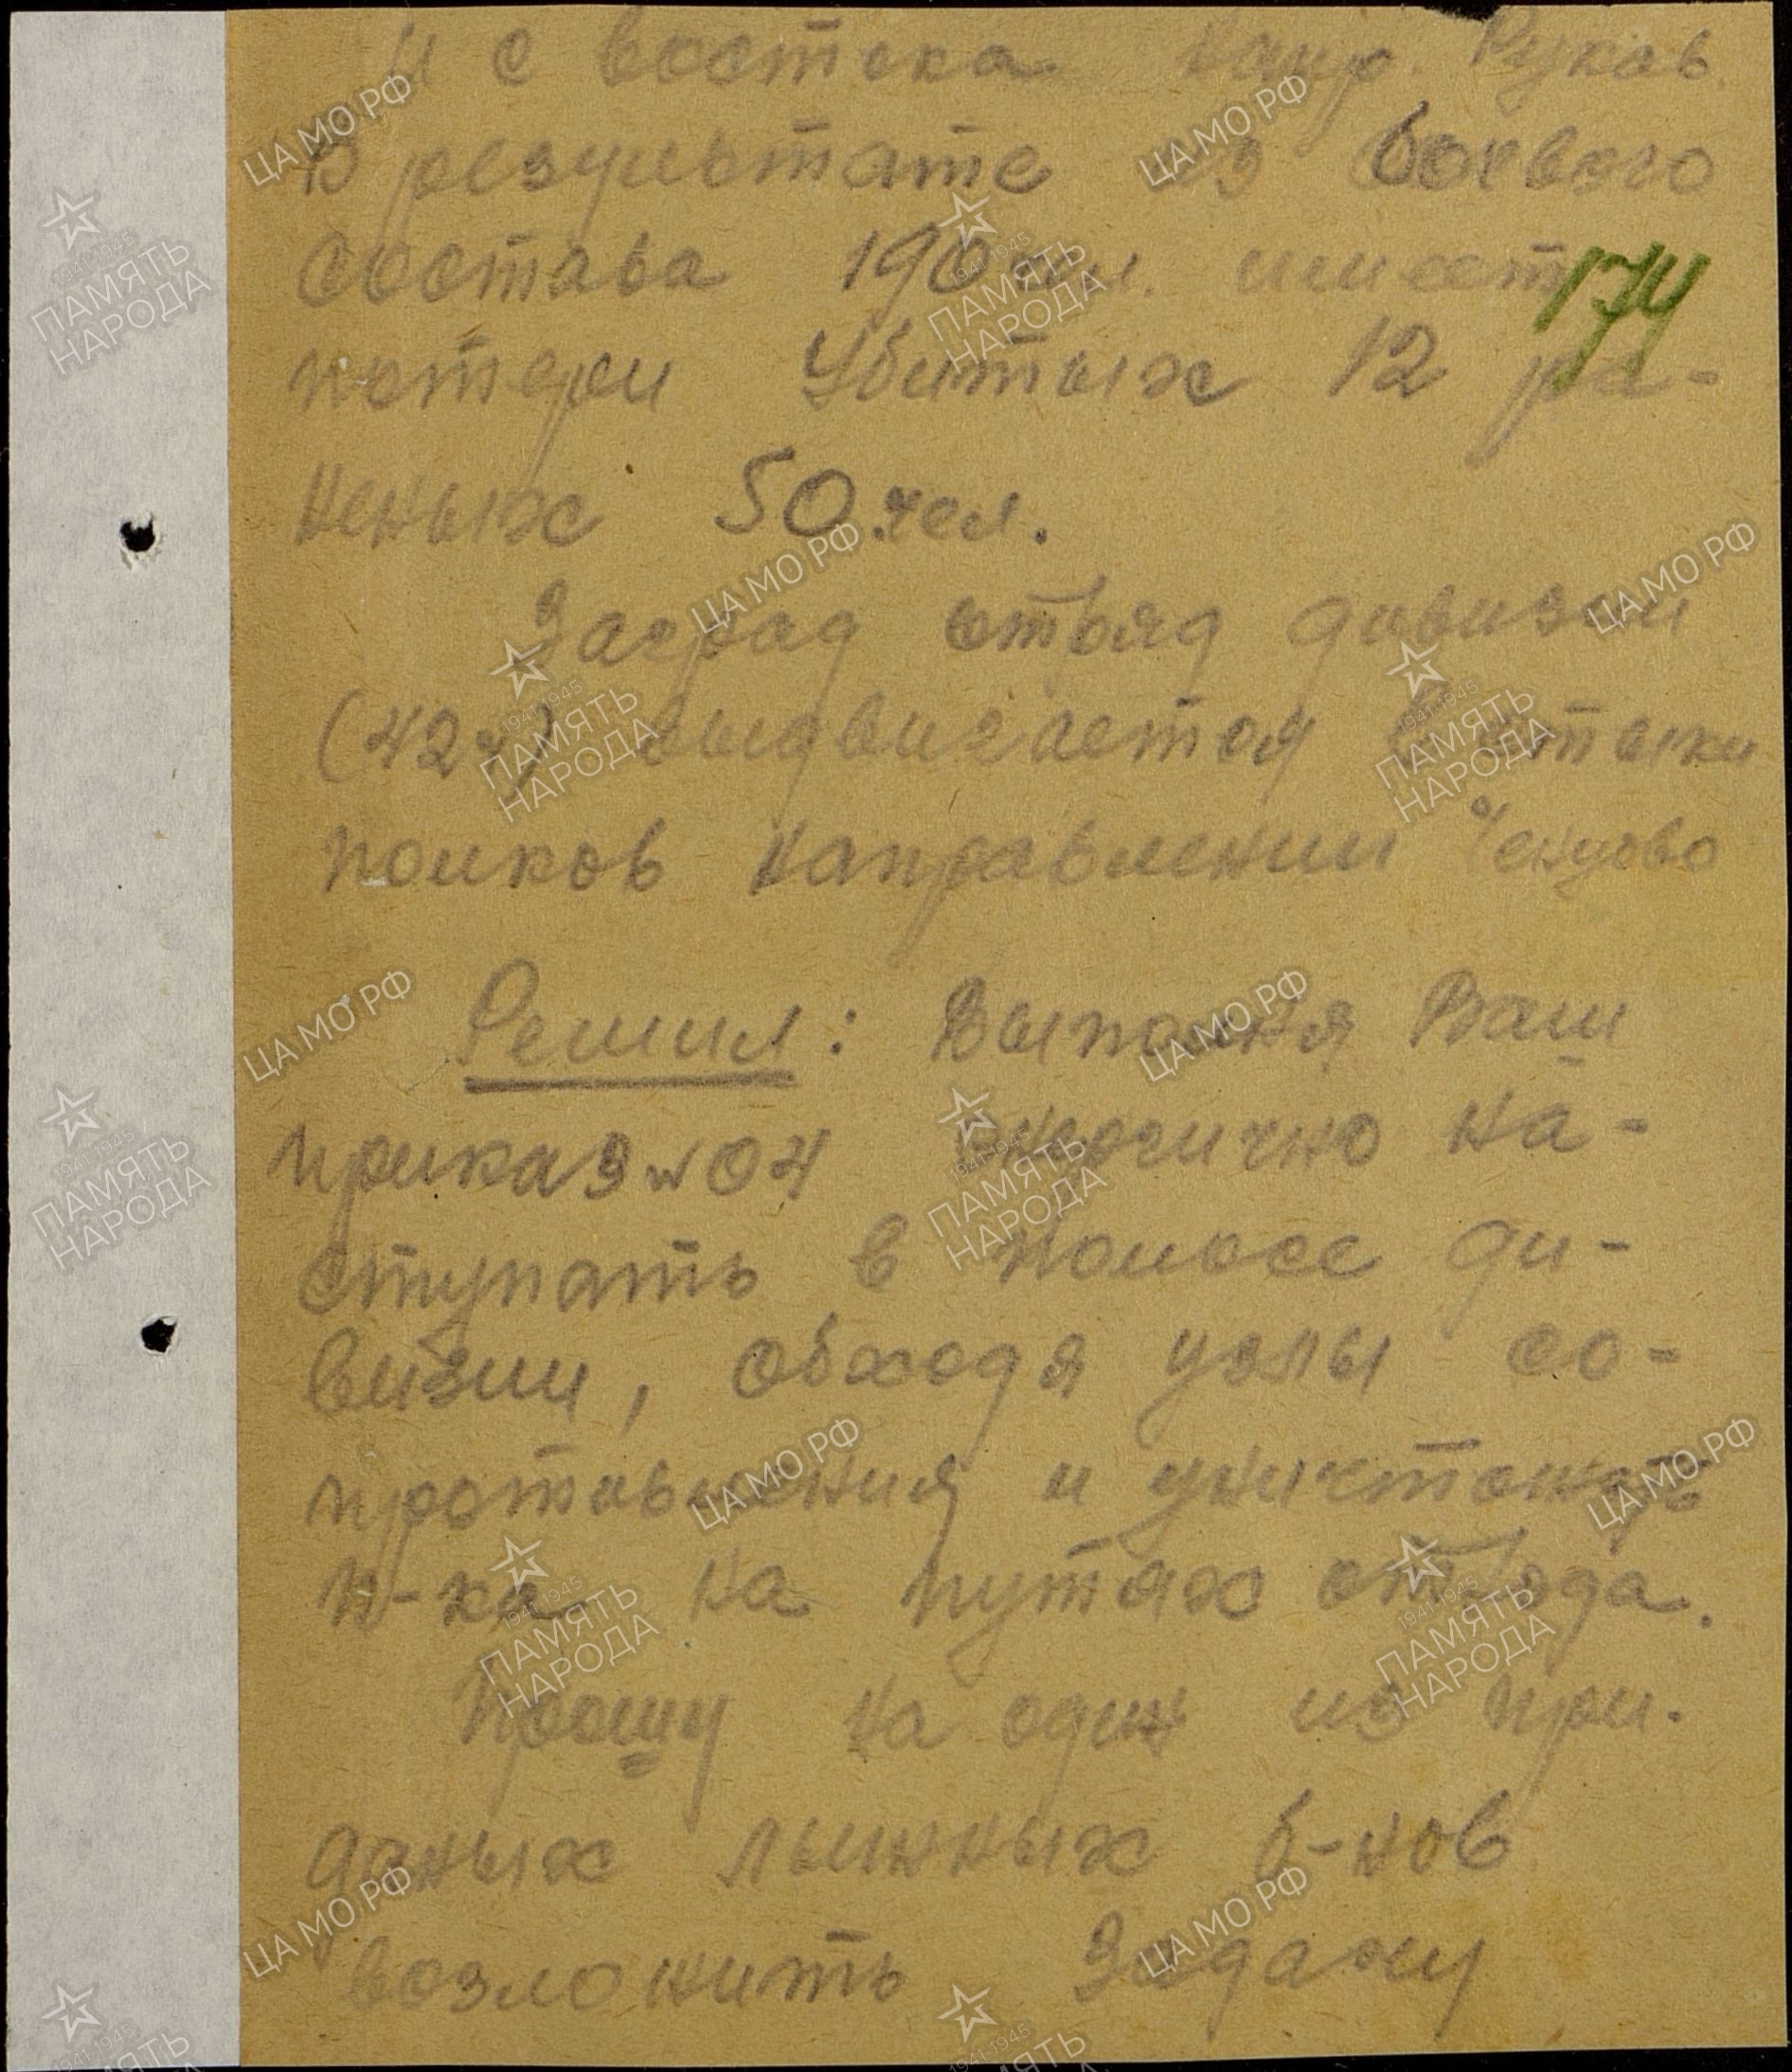 и с востока напр. Рукав.
В результате из боевого
состава 190 чел. имеет
174
потери Убитых 12 ра-
неных 50 чел.
Заград отряд дивизии
(42 ч) выдвигается в стыки
полков направлении
Решил: Выполняя Ваш
приказ № 04 энергично на-
ступать в полосе ди-
визии, обходя узлы со-
противления и уничтожать
п-ка на путях отхода.
Прошу на один из при-
даных лыжных б-нов
возложить Задачу
ЦА МО РФ
1941-1945
ПАМЯТЬ
НАРОДА